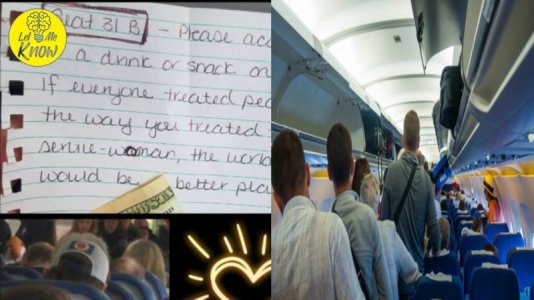 Let Me
Know
Seat 31 B - Please acc
a drink or snack on
If everyone treated peo
the way you treated
service-woman, the world
would be better pla